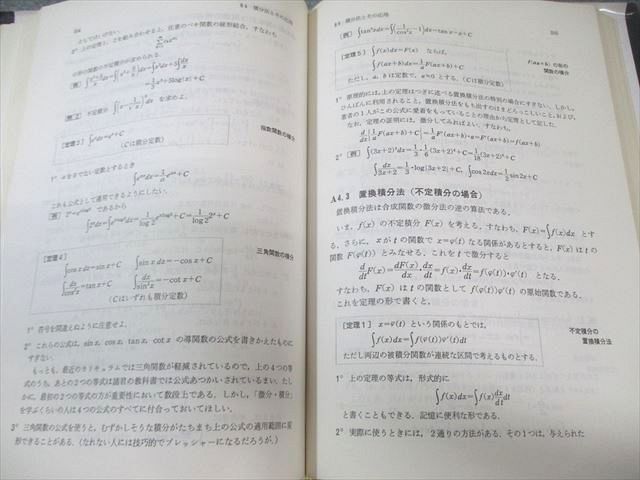 §4 積分法とその応用
となてはいけない.
2° 上の定理と,ことを組み合わせると,任意のベキ関数の線形結合,すなわち
の形の関数の不定積分が求められる.
[例2] 不定積分 を求めよ.
[定理3] ∫eˣdx=eˣ+C
(Cは積分定数)
指数関数の積分
1° αを0でない定数とするとき
これも公式として運用できるようにしたい.
であるから
[定理4]
∫cos xdx=sin x+C ∫sin xdx=−cos x+C
∫dx/cos²x=tan x+C ∫dx/sin²x=−cot x+C
(Cはいずれも積分定数)
三角関数の積分
1° 符号を間違えぬように注意せよ.
2° これらの公式は, sin x, cos x, tan x, cot x の導関数の公式を書きかえたものに
すぎない.
もっとも,最近のカリキュラムでは三角関数が軽減されているので,上の4つの等
式のうち,あとの2つの等式は諸君の教科書では公式あつかいされているまい.たし
かに,最初の2つの等式の方が重要性において数段上である.しかし,「微分・積分」
を学ぶくらいの人は4つの公式のすべてに付合っておいてほしい.
3° 三角関数の公式を使うと,むずかしそうな積分がたちまち上の公式の適用範囲に変
形できることがある.(なれない人には技巧的でプレッシャーになるだろうが.)
§4 積分法とその応用
[例] ∫tan²xdx=∫(1/cos²x−1)dx=tan x−x+C
[定理5] ∫f(x)dx=F(x) ならば,
∫f(ax+b)dx=1/a F(ax+b)+C
ただし, a, b は定数で, a≠0 とする. (Cは積分定数)
F(ax+b) の形の
関数の積分
1° 原理的には,上の定理はつぎに述べる置換積分法の特別の場合にすぎない.しかし,
ひんぱんに利用されること,置換積分法をもち出すのはまどろっこしいこと,および,
著者の1人がこの公式に愛着をもっていることの理由から定理として記した.
なお,定理の証明には,微分してみればよい.すなわち,
d/dx{1/a F(ax+b)+C}=1/a F'(ax+b)・a=F'(ax+b)=f(ax+b)
2° [例] ∫(3x+2)⁵dx=1/3・1/6(3x+2)⁶+C=1/18(3x+2)⁶+C
∫dx/3x+2=1/3・log|3x+2|+C, ∫cos2xdx=1/2 sin2x+C
A4.3 置換積分法(不定積分の場合)
置換積分法は合成関数の微分法の逆の算法である.
いま, f(x) の不定積分 F(x) を考える.すなわち, F(x)=∫f(x)dx とす
る.さらに, x が t の関数で x=φ(t) なる関係があるとすると, F(x) は t の
関数 F(φ(t)) とみなせる.これを t で微分すると
d/dt F(x)=dF(x)/dx・dx/dt=f(x)・dx/dt=f(φ(t))・φ'(t) となる.
すなわち, F(x) は t の関数として f(φ(t))φ'(t) の原始関数である.
これを定理の形で書くと,
[定理1] x=φ(t) という関係のもとでは,
∫f(x)dx=∫f(φ(t))φ'(t)dt
ただし両辺の被積分関数が連続な区間で考えるものとする.
不定積分の
置換積分法
1° 上の定理の等式は,形式的に
∫f(x)dx=∫f(x)dx/dt dt
と書くこともできる.記憶に便利な形である.
2° 実際に使うときには, 2通りの方法がある.その1つは,与えられた